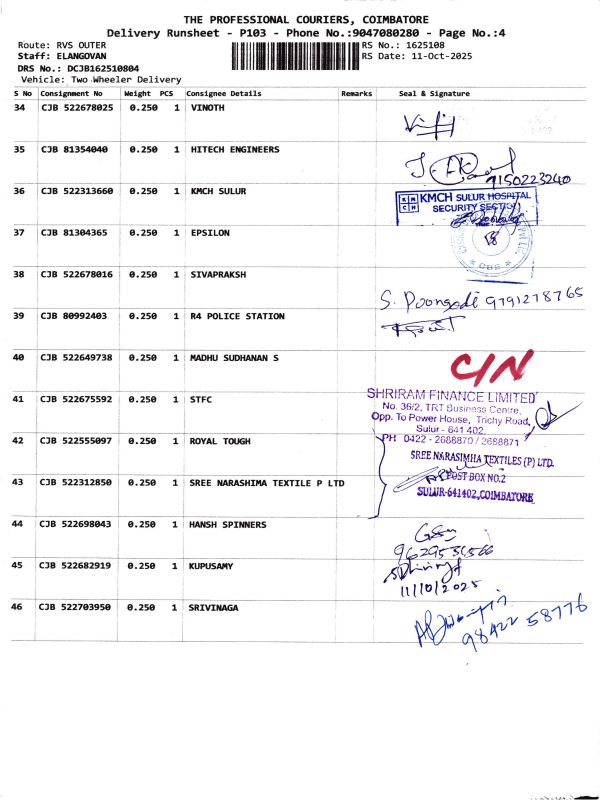 THE PROFESSIONAL COURIERS, COIMBATORE
Delivery Runsheet - P103 - Phone No.:9047080280 - Page No.:4
Route: RVS OUTER
RS No.: 1625108
Staff: ELANGOVAN
RS Date: 11-Oct-2025
DRS No.: DCJB162510804
Vehicle: Two Wheeler Delivery
S No Consignment No Weight PCS Consignee Details Remarks Seal & Signature
34 CJB 522678025 0.250 1 VINOTH
35 CJB 81354040 0.250 1 HITECH ENGINEERS
9150223240
36 CJB 522313660 0.250 1 KMCH SULUR
KMCH SULUR HOSPITAL
SECURITY SECTION
37 CJB 81304365 0.250 1 EPSILON
CBE
38 CJB 522678016 0.250 1 SIVAPRAKSH
S. Poongodi 9791278765
39 CJB 80992403 0.250 1 R4 POLICE STATION
40 CJB 522649738 0.250 1 MADHU SUDHANAN S
C/N
41 CJB 522675592 0.250 1 STFC
SHRIRAM FINANCE LIMITED
No. 36/2, TRT Business Centre,
Opp. To Power House, Trichy Road,
Sulur - 641 402.
PH 0422 - 2688870 / 2688871
42 CJB 522555097 0.250 1 ROYAL TOUGH
SREE NARASIMHA TEXTILES (P) LTD.
43 CJB 522312850 0.250 1 SREE NARASHIMA TEXTILE P LTD
POST BOX NO.2
SULUR-641402,COIMBATORE
44 CJB 522698043 0.250 1 HANSH SPINNERS
45 CJB 522682919 0.250 1 KUPUSAMY
11/10/2025
46 CJB 522703950 0.250 1 SRIVINAGA
98422 58776